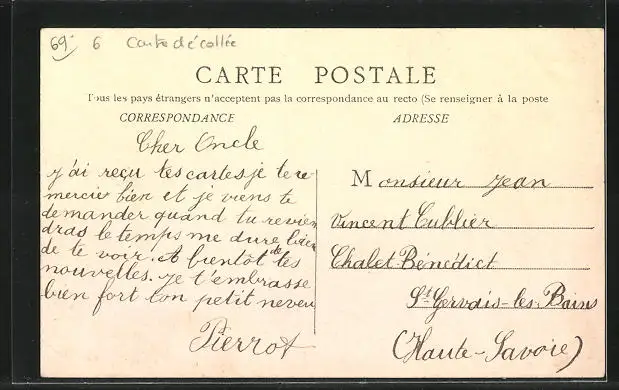 69- 6 Carte décollée
CARTE POSTALE
Tous les pays étrangers n'acceptent pas la correspondance au recto (Se renseigner à la poste
CORRESPONDANCE
Cher Oncle
y'ai reçu tes cartes je te re
mercie bien et je viens te
demander quand tu revien
dras le temps me dure bien
de te voir. A bientôt de tes
nouvelles. je t'embrasse
bien fort ton petit neveu
Pierrot
ADRESSE
Monsieur Jean
Vincent Cublier
Chalet-Bénédict
St Gervais-les-Bains
(Haute-Savoie)